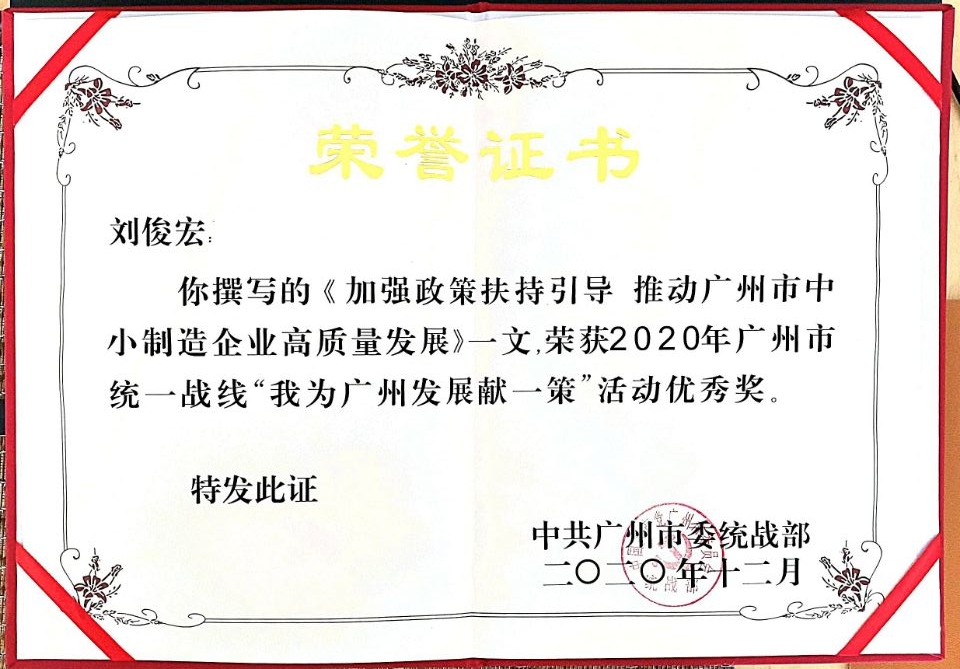 荣誉证书
刘俊宏:
你撰写的《加强政策扶持引导 推动广州市中
小制造企业高质量发展》一文,荣获2020年广州市
统一战线“我为广州发展献一策”活动优秀奖。
特发此证
中共广州市委统战部
二〇二〇年十二月
统战部